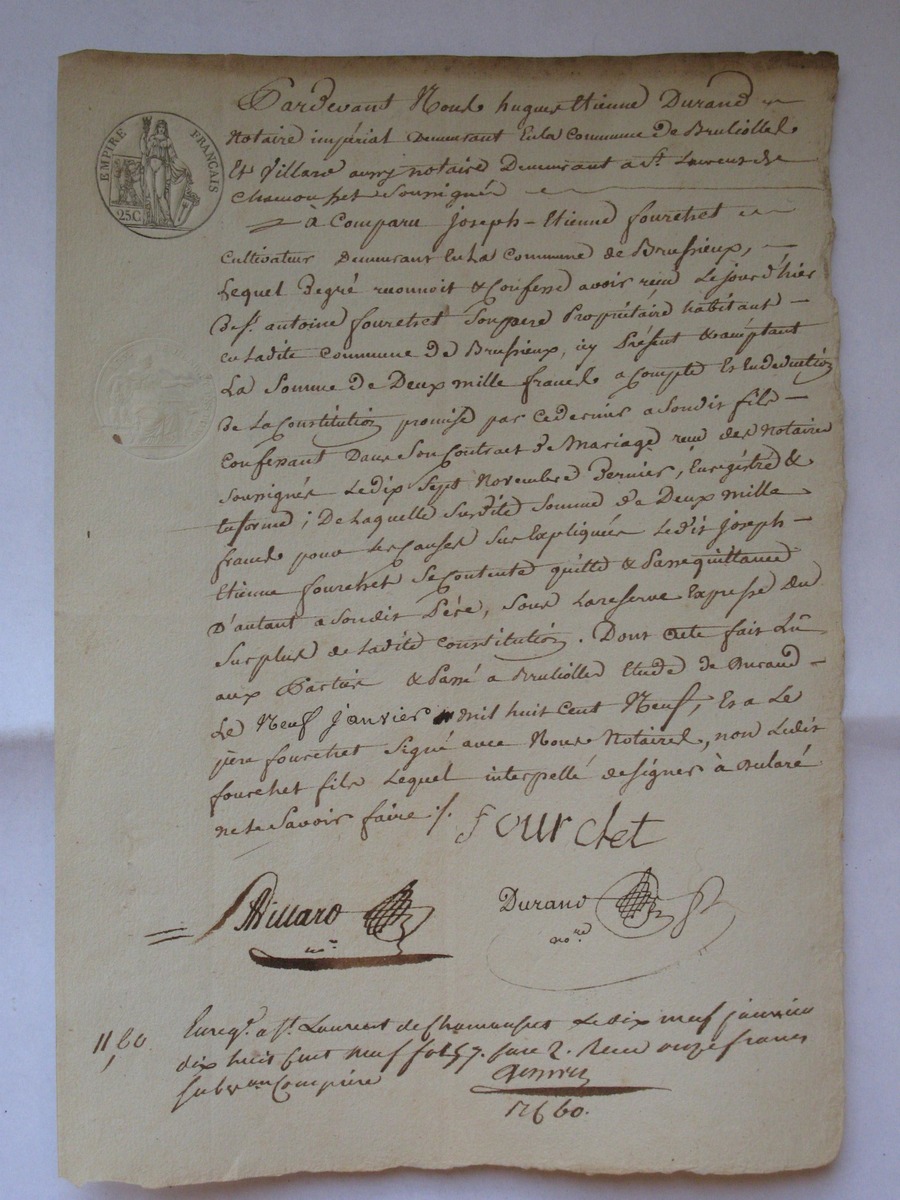 EMPIRE FRANÇAIS
25C
Pardevant Nous hugues Etienne Durand
Notaire impérial Demeurant En la Commune de Brullioles
Et Villard aussy notaire Demeurant a St. Laurent de
chamousset Soussignés
à Comparu Joseph-Etienne fourchet
Cultivateur Demeurant En La Commune de Brussieux,
Lequel De gré reconnoit & Confesse avoir reçu Le jour d'hier
de sr. antoine fourchet Son pere Propriétaire habitant
en Ladite Commune de Brussieux, icy Présent & acceptant
La Somme de Deux mille francs a Compte Et En deduction
de La Constitution promise par ce dernier a Son dit fils
Confessant Dans Son Contrat de Mariage reçu des Notaires
soussignés Le dix Sept Novembre Dernier, Enregistré &
En forme ; De Laquelle Susdite Somme de Deux mille
francs pour Les Causes Sus Expliquées Ledit joseph-
Etienne fourchet Se Contente quitte & Passe quittance
D'autant a Son dit Père, Sous La reserve Expresse Du
Surplus de Ladite Constitution. Dont acte fait Lû
aux Parties & Passé a Brullioles Etude de Durand
Le Neuf janvier mil huit Cent Neuf, Et a Le
père fourchet Signé avec Nous Notaires, non Ledit
fourchet fils Lequel interpellé de signer à Déclaré
ne Le Savoir faire ./.
Fourchet
Villard
nre.
Durand
nore.
11,60
Enregr. a St. Laurent de Chamousset Le dix neuf janvier
dix huit Cent neuf fol. 57. Case 2. Recu onze francs
subvon Comprise
12 f 60.